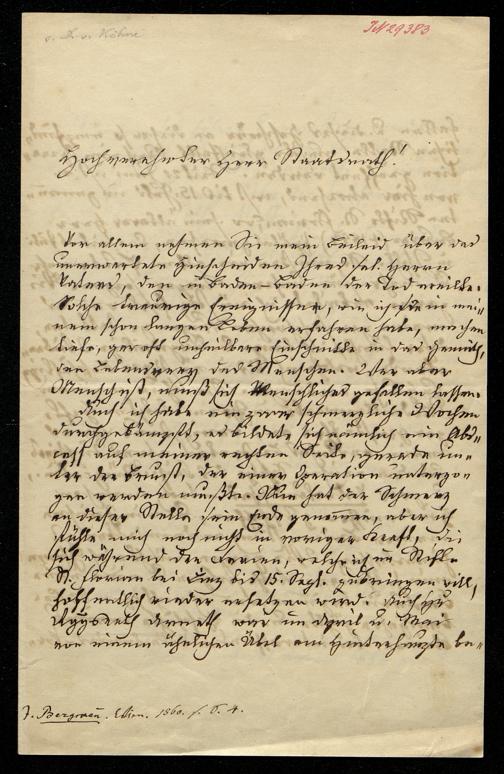 v. B. v. Köhne
IN 29383
Hochverehrter Herr Staatsrath!
Vor allem nehmen Sie mein Beileid über das
unerwartete Hinscheiden Ihres sel. Herrn
Vaters, den in Baden-Baden der Tod ereilte.
Solche traurige Ereignisse, wie ich sie in mei-
nem schon langen Leben erfahren habe, machen
tiefe, gar oft unheilbare Einschnitte in das Gemüth,
den Lebensgang des Menschen. Wer aber
Mensch ist, muß sich Menschliches gefallen lassen.
Auch ich habe ein paar schmerzliche Wochen
durchgekämpft, es bildete sich nämlich ein Abs-
cess auf meiner rechten Seite, gerade un-
ter der Brust, der einer Operation unterzo-
gen werden mußte. Nun hat der Schmerz
an dieser Stelle sein Ende genommen, aber ich
fühle mich noch nicht in voriger Kraft, die
sich während der Ferien, welche ich im Stifte
St. Florian bei Linz bis 15. Sept. zubringen will,
hoffentlich wieder ersetzen wird. Auch
Arneth war im April u. Mai
von einem ähnlichen Übel am Hinterhaupte be-
J. Bergmann. Wien. 1860. S. 4.